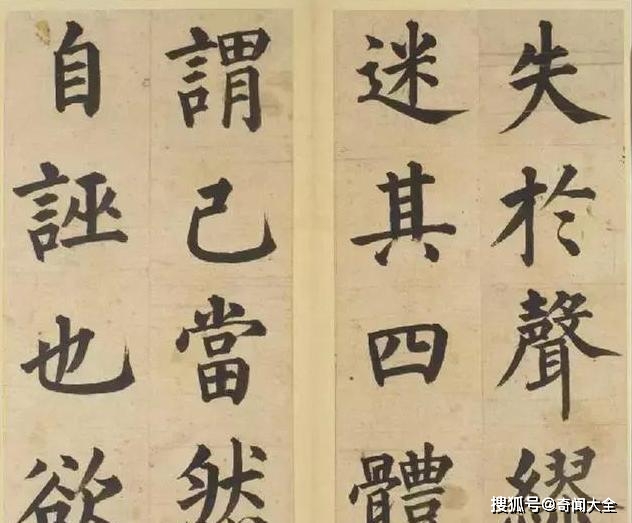 失於聲繆
迷其四體
謂己當然
自誣也欲
搜狐号@奇闻大全